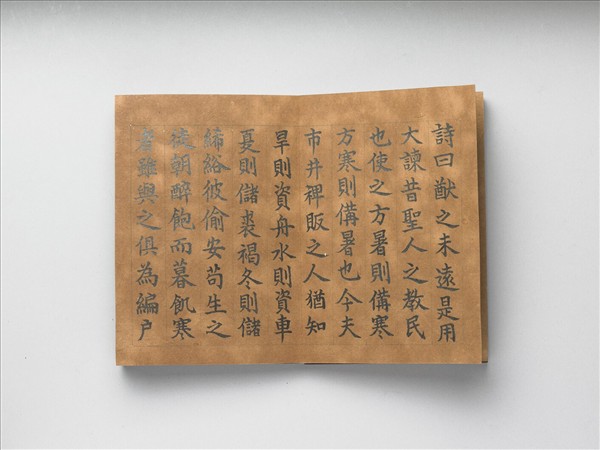 詩曰猷之未遠是用
大諫昔聖人之教民
也使之方暑則備寒
方寒則備暑也今夫
市井裨販之人猶知
旱則資舟水則資車
夏則儲裘褐冬則儲
絺綌彼偷安苟生之
徒朝醉飽而暮飢寒
者雖與之俱為編户